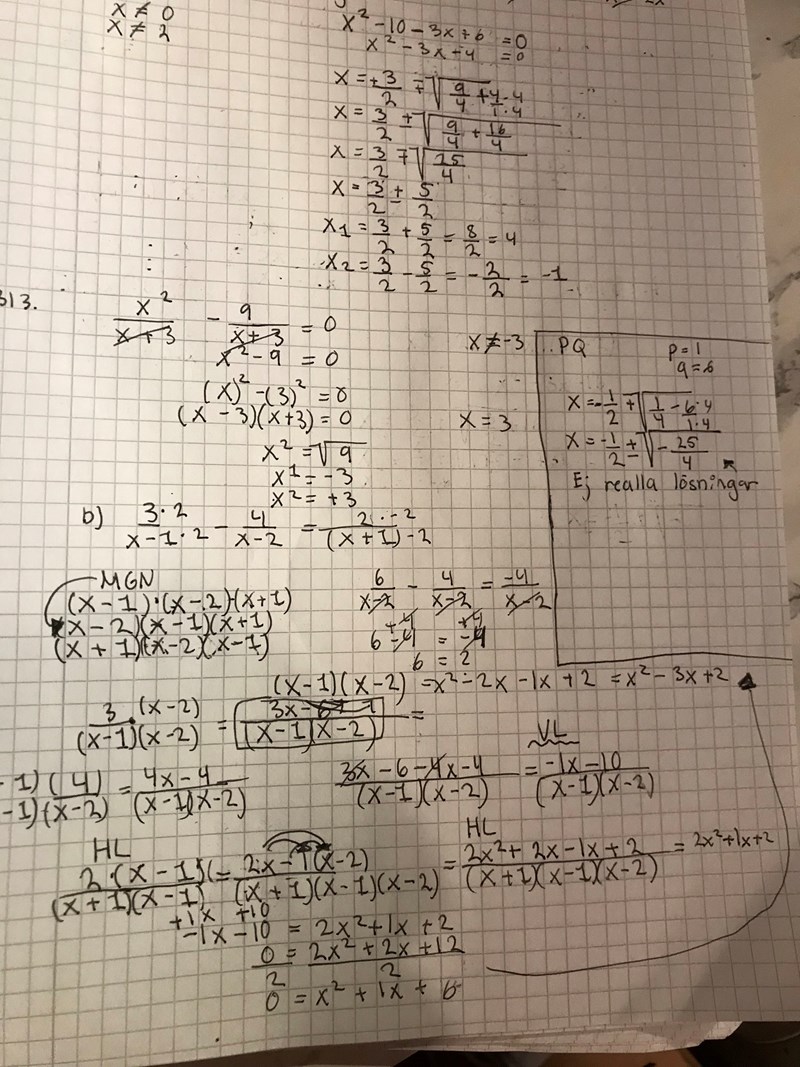 x ≠ 0
x ≠ 2
x² - 10 - 3x + 6 = 0
x² - 3x - 4 = 0
x = +3/2 ∓ √(9/4 + 4·4/1·4)
x = 3/2 ± √(9/4 + 16/4)
x = 3/2 ∓ √(25/4)
x = 3/2 ± 5/2
x1 = 3/2 + 5/2 = 8/2 = 4
x2 = 3/2 - 5/2 = -2/2 = -1
313.
x²/(x+3) - 9/(x+3) = 0
x² - 9 = 0
x ≠ -3
(x)² - (3)² = 0
(x - 3)(x + 3) = 0
x = 3
x² = √9
x¹ = -3
x² = +3
PQ
p = 1
q = 6
x = -1/2 ∓ √(1/4 - 6·4/1·4)
x = -1/2 ± √(-25/4)
Ej realla lösningar
b) 3·2/x-1·2 - 4/x-2 = 2·-2/(x+1)-2
MGN
(x-1)·(x-2)·(x+1)
(x-2)(x-1)(x+1)
(x+1)(x-2)(x-1)
6/x-2 - 4/x-2 = -4/x-2
+4 +4
6 - 4 = -4
6 = 2
(x-1)(x-2) = x² - 2x - 1x + 2 = x² - 3x + 2
3·(x-2)/(x-1)(x-2) = 3x-6/(x-1)(x-2) =
-1)(4)/-1)(x-2) = 4x-4/(x-1)(x-2)
3x-6-4x-4/(x-1)(x-2) = -1x-10/(x-1)(x-2)
VL
HL
2·(x-1)(/(x+1)(x-1) = 2x-1(x-2)/(x+1)(x-1)(x-2)
HL
= 2x²+2x-1x+2/(x+1)(x-1)(x-2) = 2x²+1x+2
+1x +10
-1x-10 = 2x²+1x+2
0/2 = 2x²+2x+12/2
0 = x² + 1x + 6